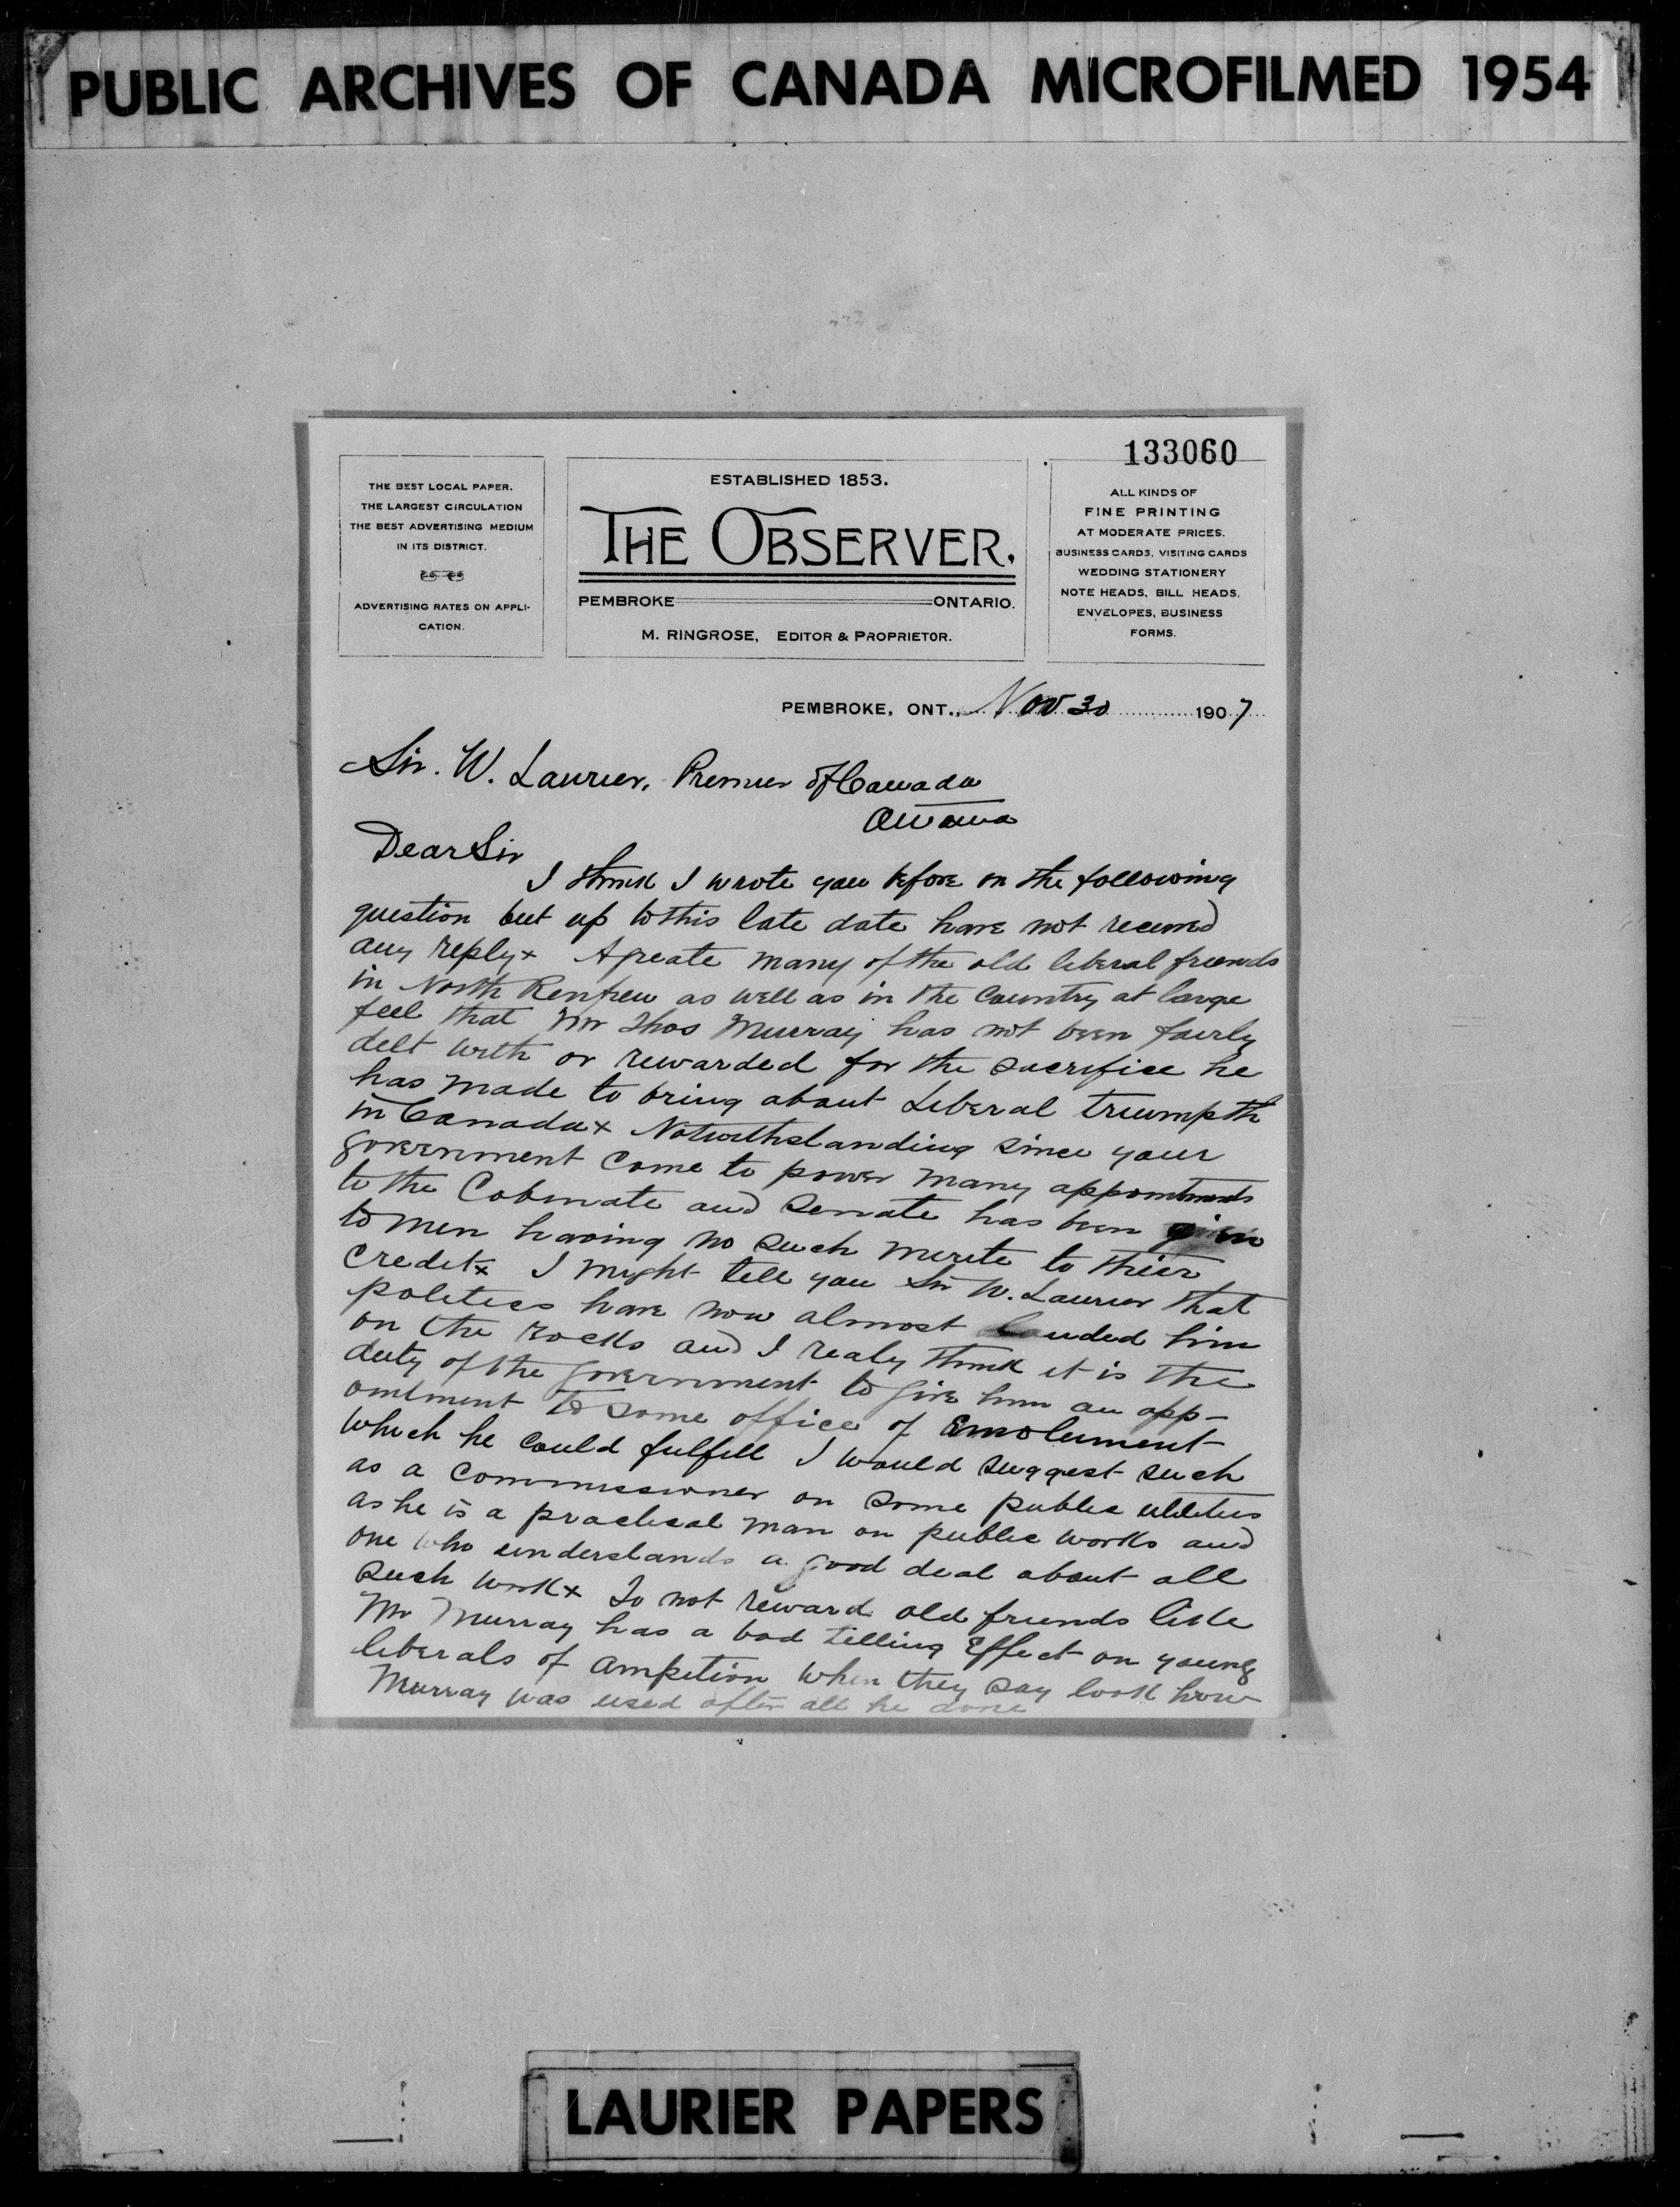 PUBLIC ARCHIVES OF CANADA MICROFILMED 1954
133060
THE BEST LOCAL PAPER.
THE LARGEST CIRCULATION
THE BEST ADVERTISING MEDIUM
IN ITS DISTRICT.
ADVERTISING RATES ON APPLI-
CATION.
ESTABLISHED 1853.
THE OBSERVER.
PEMBROKE ONTARIO.
M. RINGROSE, EDITOR & PROPRIETOR.
ALL KINDS OF
FINE PRINTING
AT MODERATE PRICES.
BUSINESS CARDS, VISITING CARDS
WEDDING STATIONERY
NOTE HEADS, BILL HEADS.
ENVELOPES, BUSINESS
FORMS.
PEMBROKE, ONT., Nov 30 1907
Sir. W. Laurier, Premier of Canada
Ottawa
Dear Sir
I think I wrote you before on the following
question but up to this late date have not received
any reply x A greate many of the old liberal friends
in North Renfrew as well as in the Country at large
feel that Mr Thos Murray has not been fairly
delt with or rewarded for the sacrifice he
has made to bring about Liberal triumpth
in Canada x Notwithstanding since your
government come to power many appointments
to the Cobinate and Senate has been given
to men having no such merite to their
credit x I might tell you Sir W. Laurier that
politics have now almost landed him
on the rocks and I realy think it is the
duty of the government to give him an app-
ointment to some office of Emolument
which he could fulfill I would suggest such
as a commissioner on some public utilities
as he is a practical man on public works and
one who understands a good deal about all
such work x To not reward old friends like
Mr Murray has a bad telling Effect on young
liberals of ampition when they say look how
Murray was used after all he done
LAURIER PAPERS